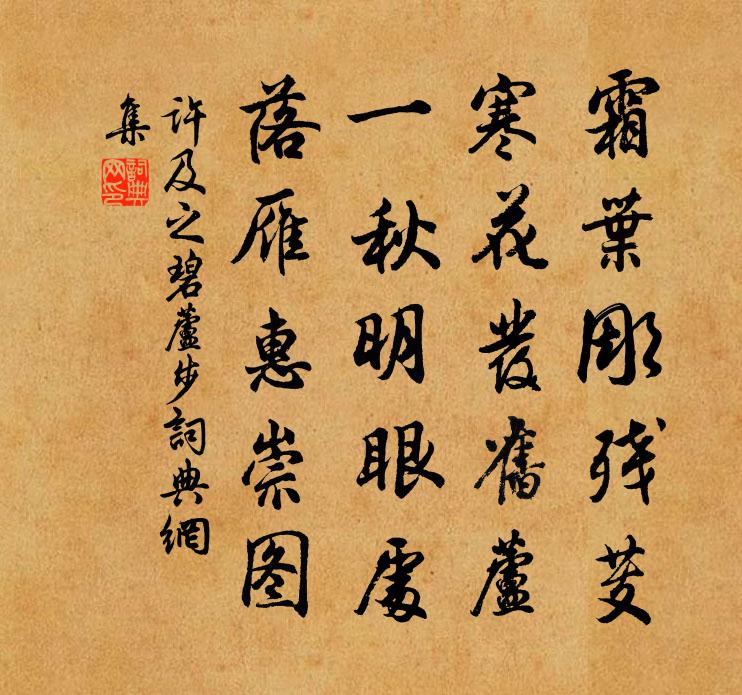 霜葉彫残芰
寒花發舊蘆
一秋明眼處
落雁惠崇图
許及之碧蘆步詞典網
集
詞典网印